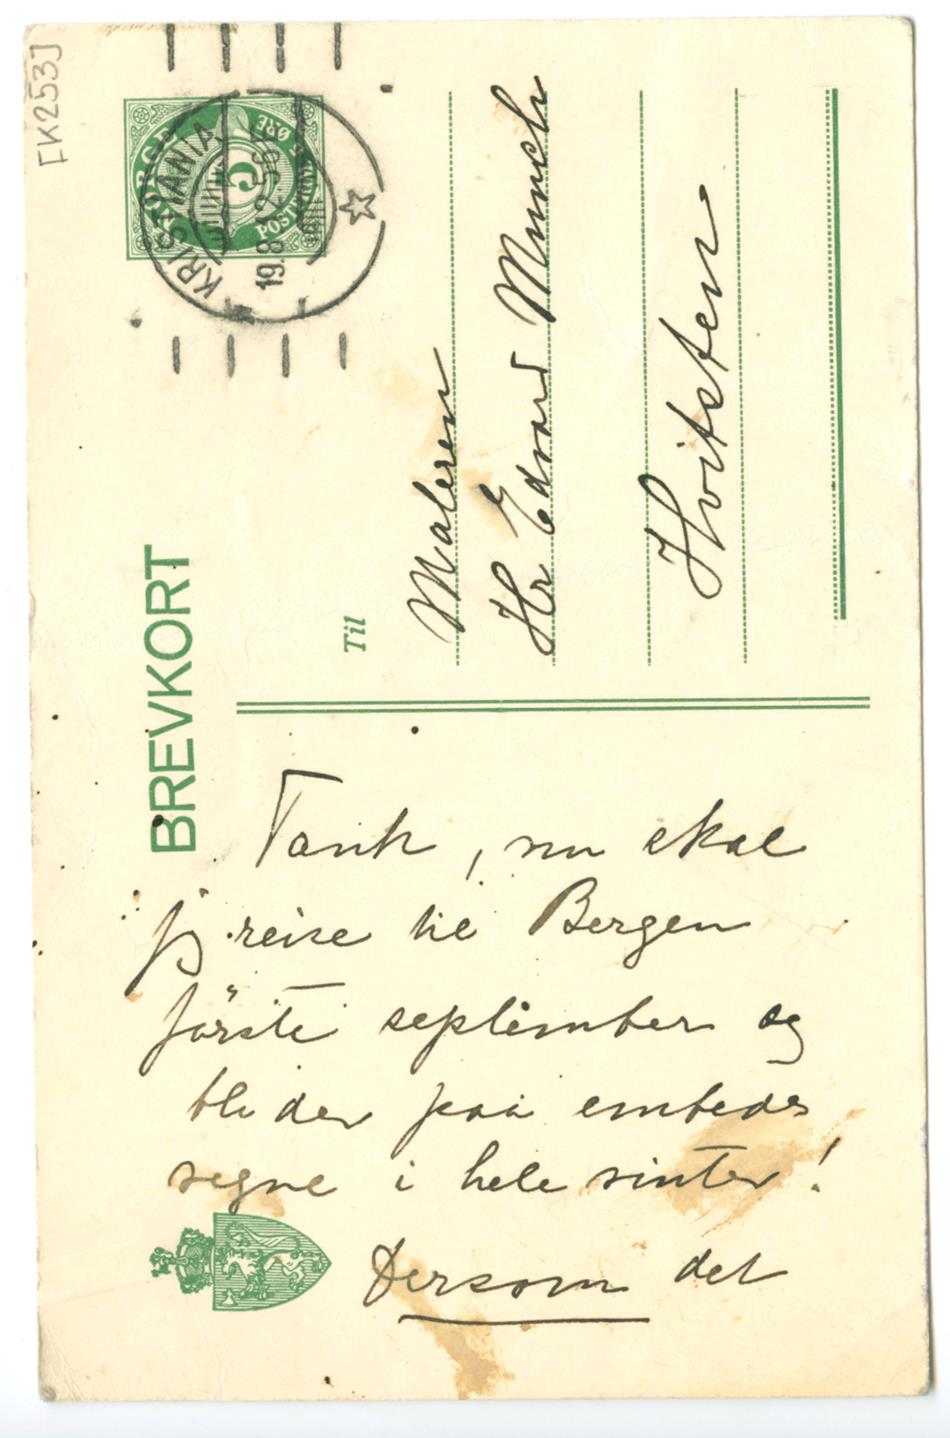 [K253]
NORGE
5
POSTFRIM. ØRE
KRISTIANIA
19.8.12. 5-6 E
BREVKORT
Til
Maleren
Hr Edvard Munch
Hvitsten
Tænk, nu skal
jeg reise til Bergen
förste september og
bli der paa embeds
vegne i hele vinter!
Dersom det